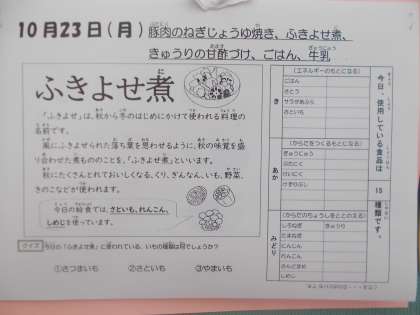 10月23日(月) 豚肉のねぎじょうゆ焼き、ふきよせ煮、
きゅうりの甘酢づけ、ごはん、牛乳
ふきよせ煮
「ふきよせ」は、秋から冬のはじめにかけて使われる料理の
名前です。
風にふきよせられた落ち葉を思わせるように、秋の味覚を盛
り合わせた煮もののことを、「ふきよせ煮」といいます。
秋にたくさんとれておいしくなる、くり、ぎんなん、いも、野菜、
きのこなどが使われます。
今日の給食では、さといも、れんこん、
しめじを使っています。
クイズ 今日の「ふきよせ煮」に使われている、いもの種類は何でしょうか？
①さつまいも ②さといも ③やまいも
今日、使用している食品は
15
種類です。
き
(エネルギーのもとになる)
ごはん
さとう
サラダあぶら
さといも
あか
(からだをつくるもとになる)
ぎゅうにゅう
ぶたにく
けずりぶし
みどり
(からだのちょうしをととのえる)
しろねぎ きゅうり
たまねぎ
にんじん
れんこん
しめじ